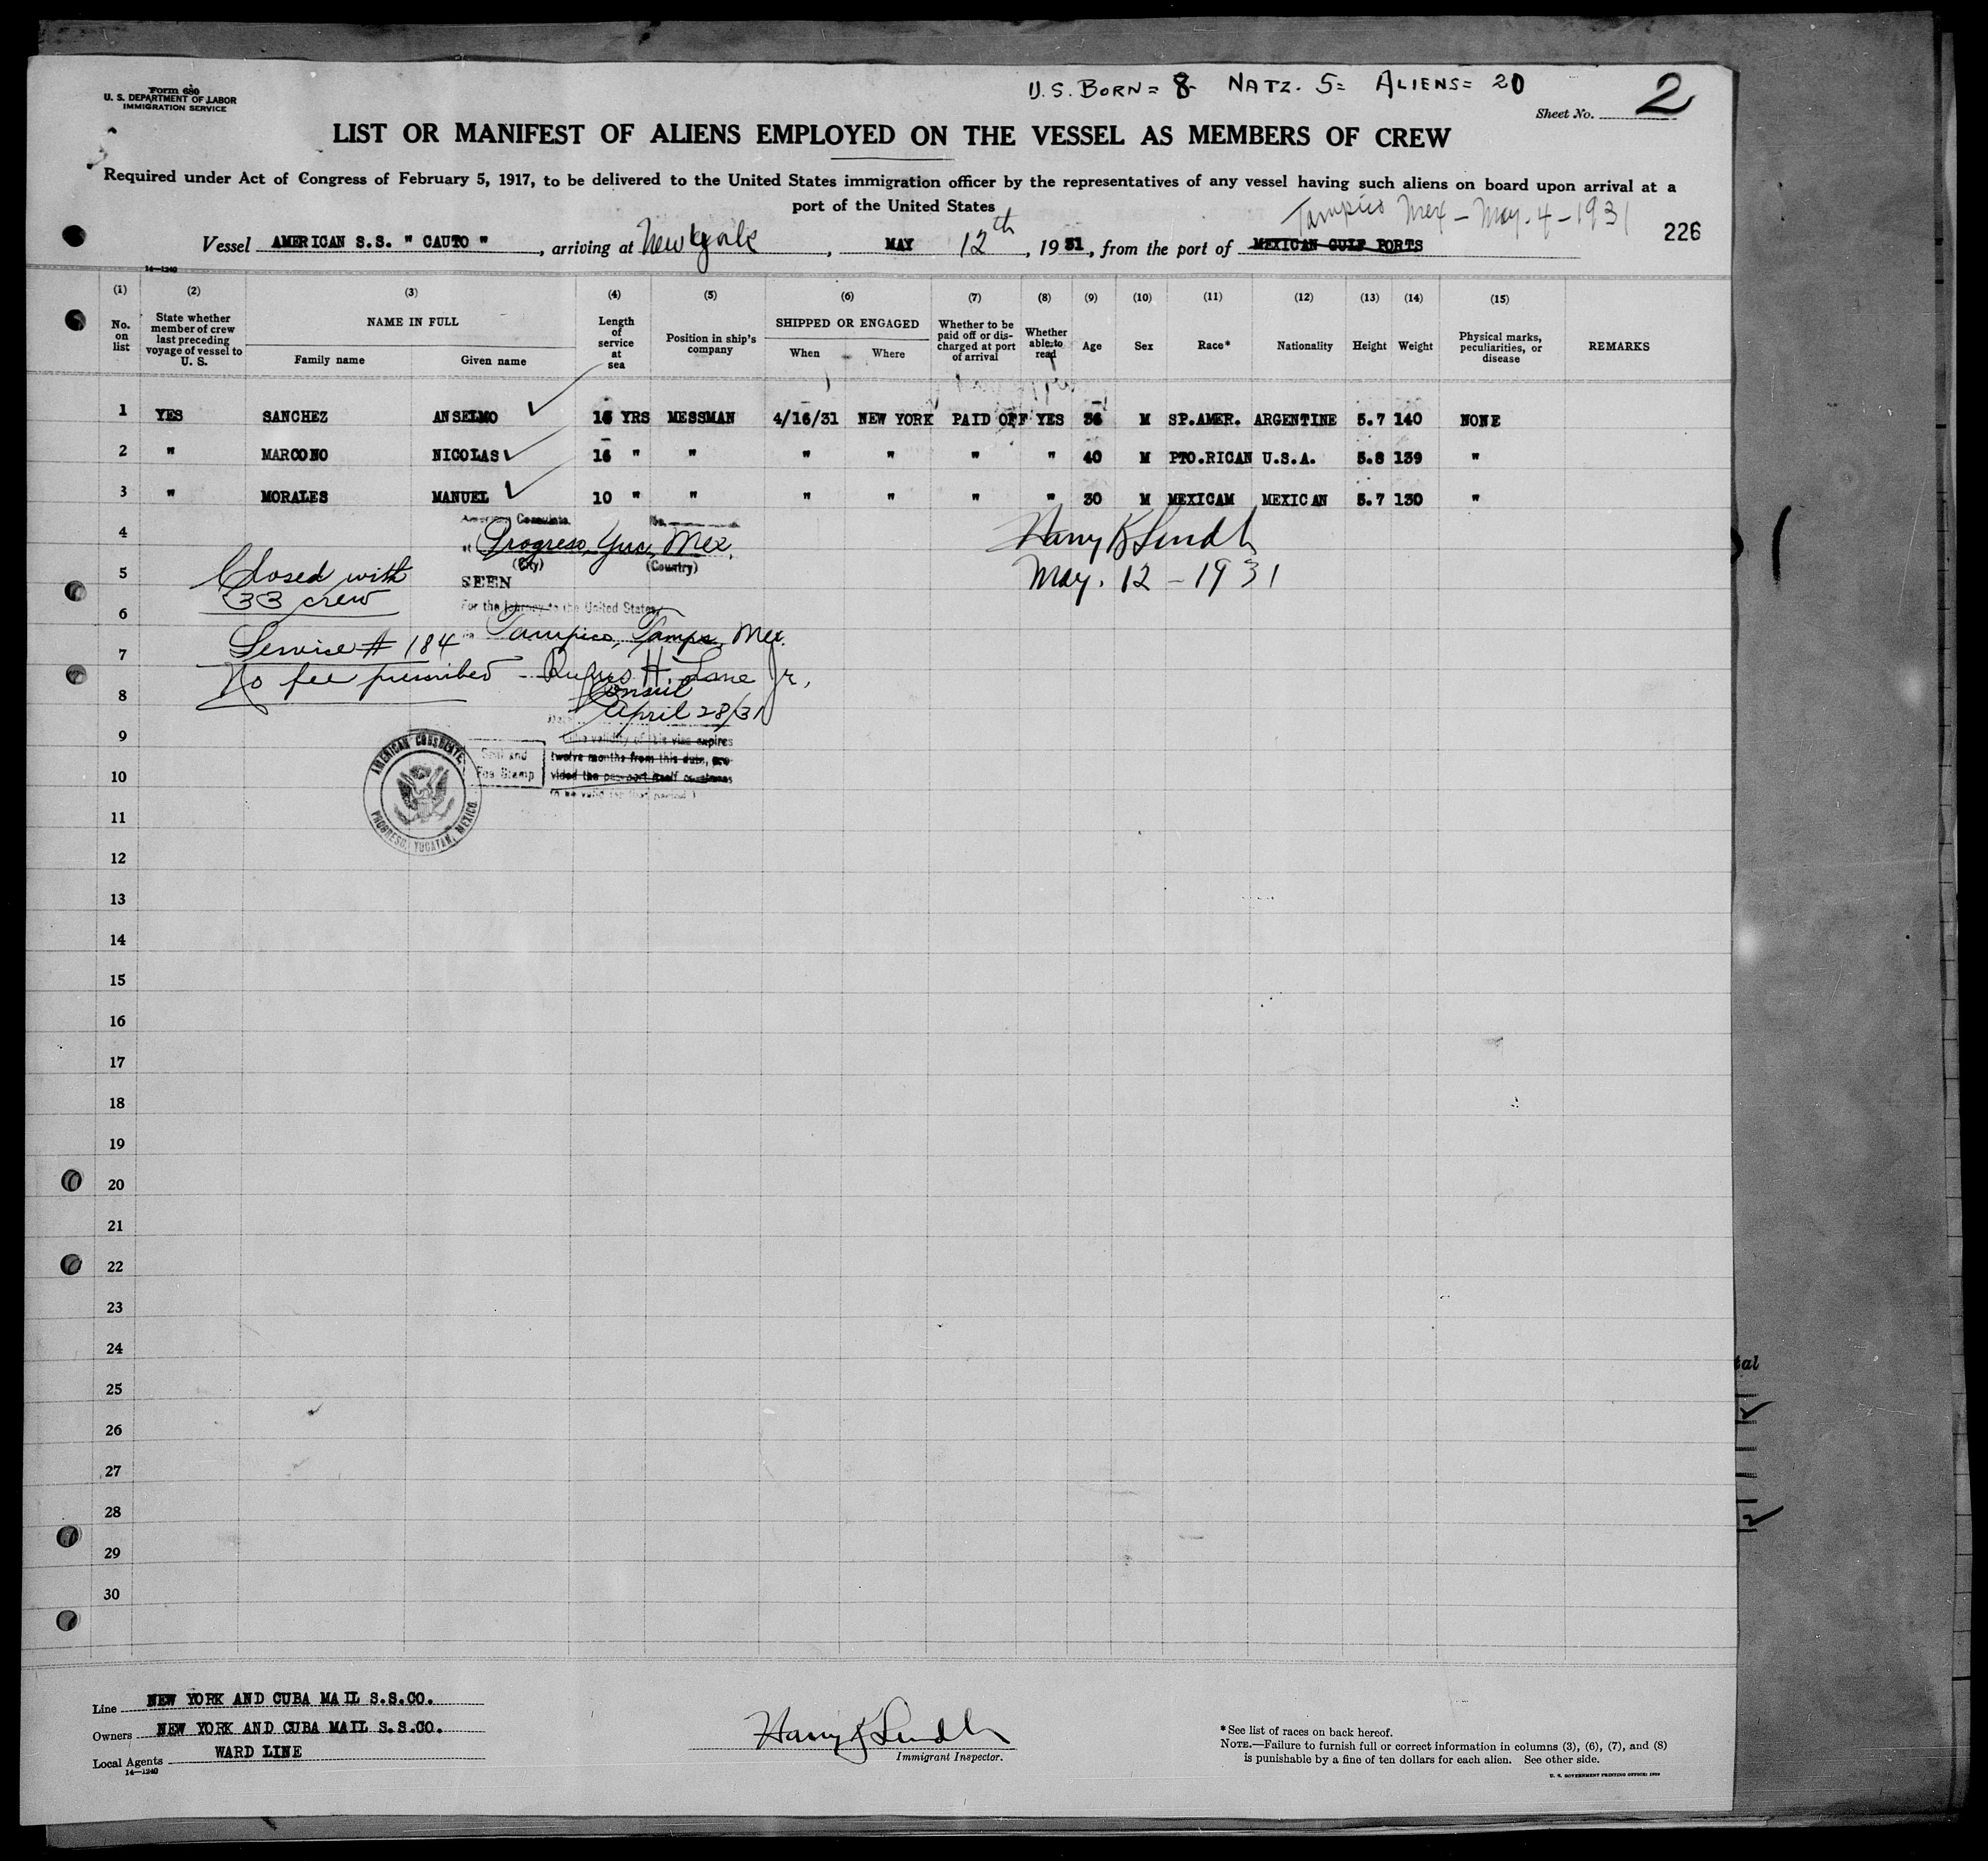 Form 680
U. S. DEPARTMENT OF LABOR
IMMIGRATION SERVICE
U.S. BORN = 8 NATZ. 5 = ALIENS = 20
Sheet No. 2
LIST OR MANIFEST OF ALIENS EMPLOYED ON THE VESSEL AS MEMBERS OF CREW
Required under Act of Congress of February 5, 1917, to be delivered to the United States immigration officer by the representatives of any vessel having such aliens on board upon arrival at a
port of the United States
Tampico Mex - May. 4 - 1931
226
Vessel AMERICAN S.S. " CAUTO ", arriving at New York, MAY 12th, 1931, from the port of MEXICAN GULF PORTS
14—1240
(1) (2) (3) (4) (5) (6) (7) (8) (9) (10) (11) (12) (13) (14) (15)
No. on list
State whether member of crew last preceding voyage of vessel to U. S.
NAME IN FULL
Family name Given name
Length of service at sea
Position in ship's company
SHIPPED OR ENGAGED
When Where
Whether to be paid off or discharged at port of arrival
Whether able to read
Age Sex Race* Nationality Height Weight
Physical marks, peculiarities, or disease
REMARKS
1 YES SANCHEZ ANSELMO 16 YRS MESSMAN 4/16/31 NEW YORK PAID OFF YES 36 M SP.AMER. ARGENTINE 5.7 140 NONE
2 " MARCONO NICOLAS 16 " " " " " " 40 M PTO.RICAN U.S.A. 5.8 139 "
3 " MORALES MANUEL 10 " " " " " " 30 M MEXICAM MEXICAN 5.7 130 "
American Consulate No.
4
at Progreso, Yuc, Mex.
(City) (Country)
Harry K Lindh
May. 12 - 1931
5
SEEN
Closed with
33 crew
For the journey to the United States
6
Tampico, Tamps, Mex.
Service # 184
7
No fee prescribed - Rufus H. Lane Jr,
8
Consul
April 28/31
9
(The validity of this visa expires
twelve months from this date, pro-
vided the passport itself continues
to be valid for that period)
Seal and
Fee Stamp
AMERICAN CONSULATE
PROGRESO, YUCATAN, MEXICO
10
11
12
13
14
15
16
17
18
19
20
21
22
23
24
25
26
27
28
29
30
tal
Line NEW YORK AND CUBA MAIL S.S.CO.
Owners NEW YORK AND CUBA MAIL S.S.CO.
Local Agents WARD LINE
14—1240
Harry K Lindh
Immigrant Inspector.
*See list of races on back hereof.
NOTE.—Failure to furnish full or correct information in columns (3), (6), (7), and (8)
is punishable by a fine of ten dollars for each alien. See other side.
U. S. GOVERNMENT PRINTING OFFICE: